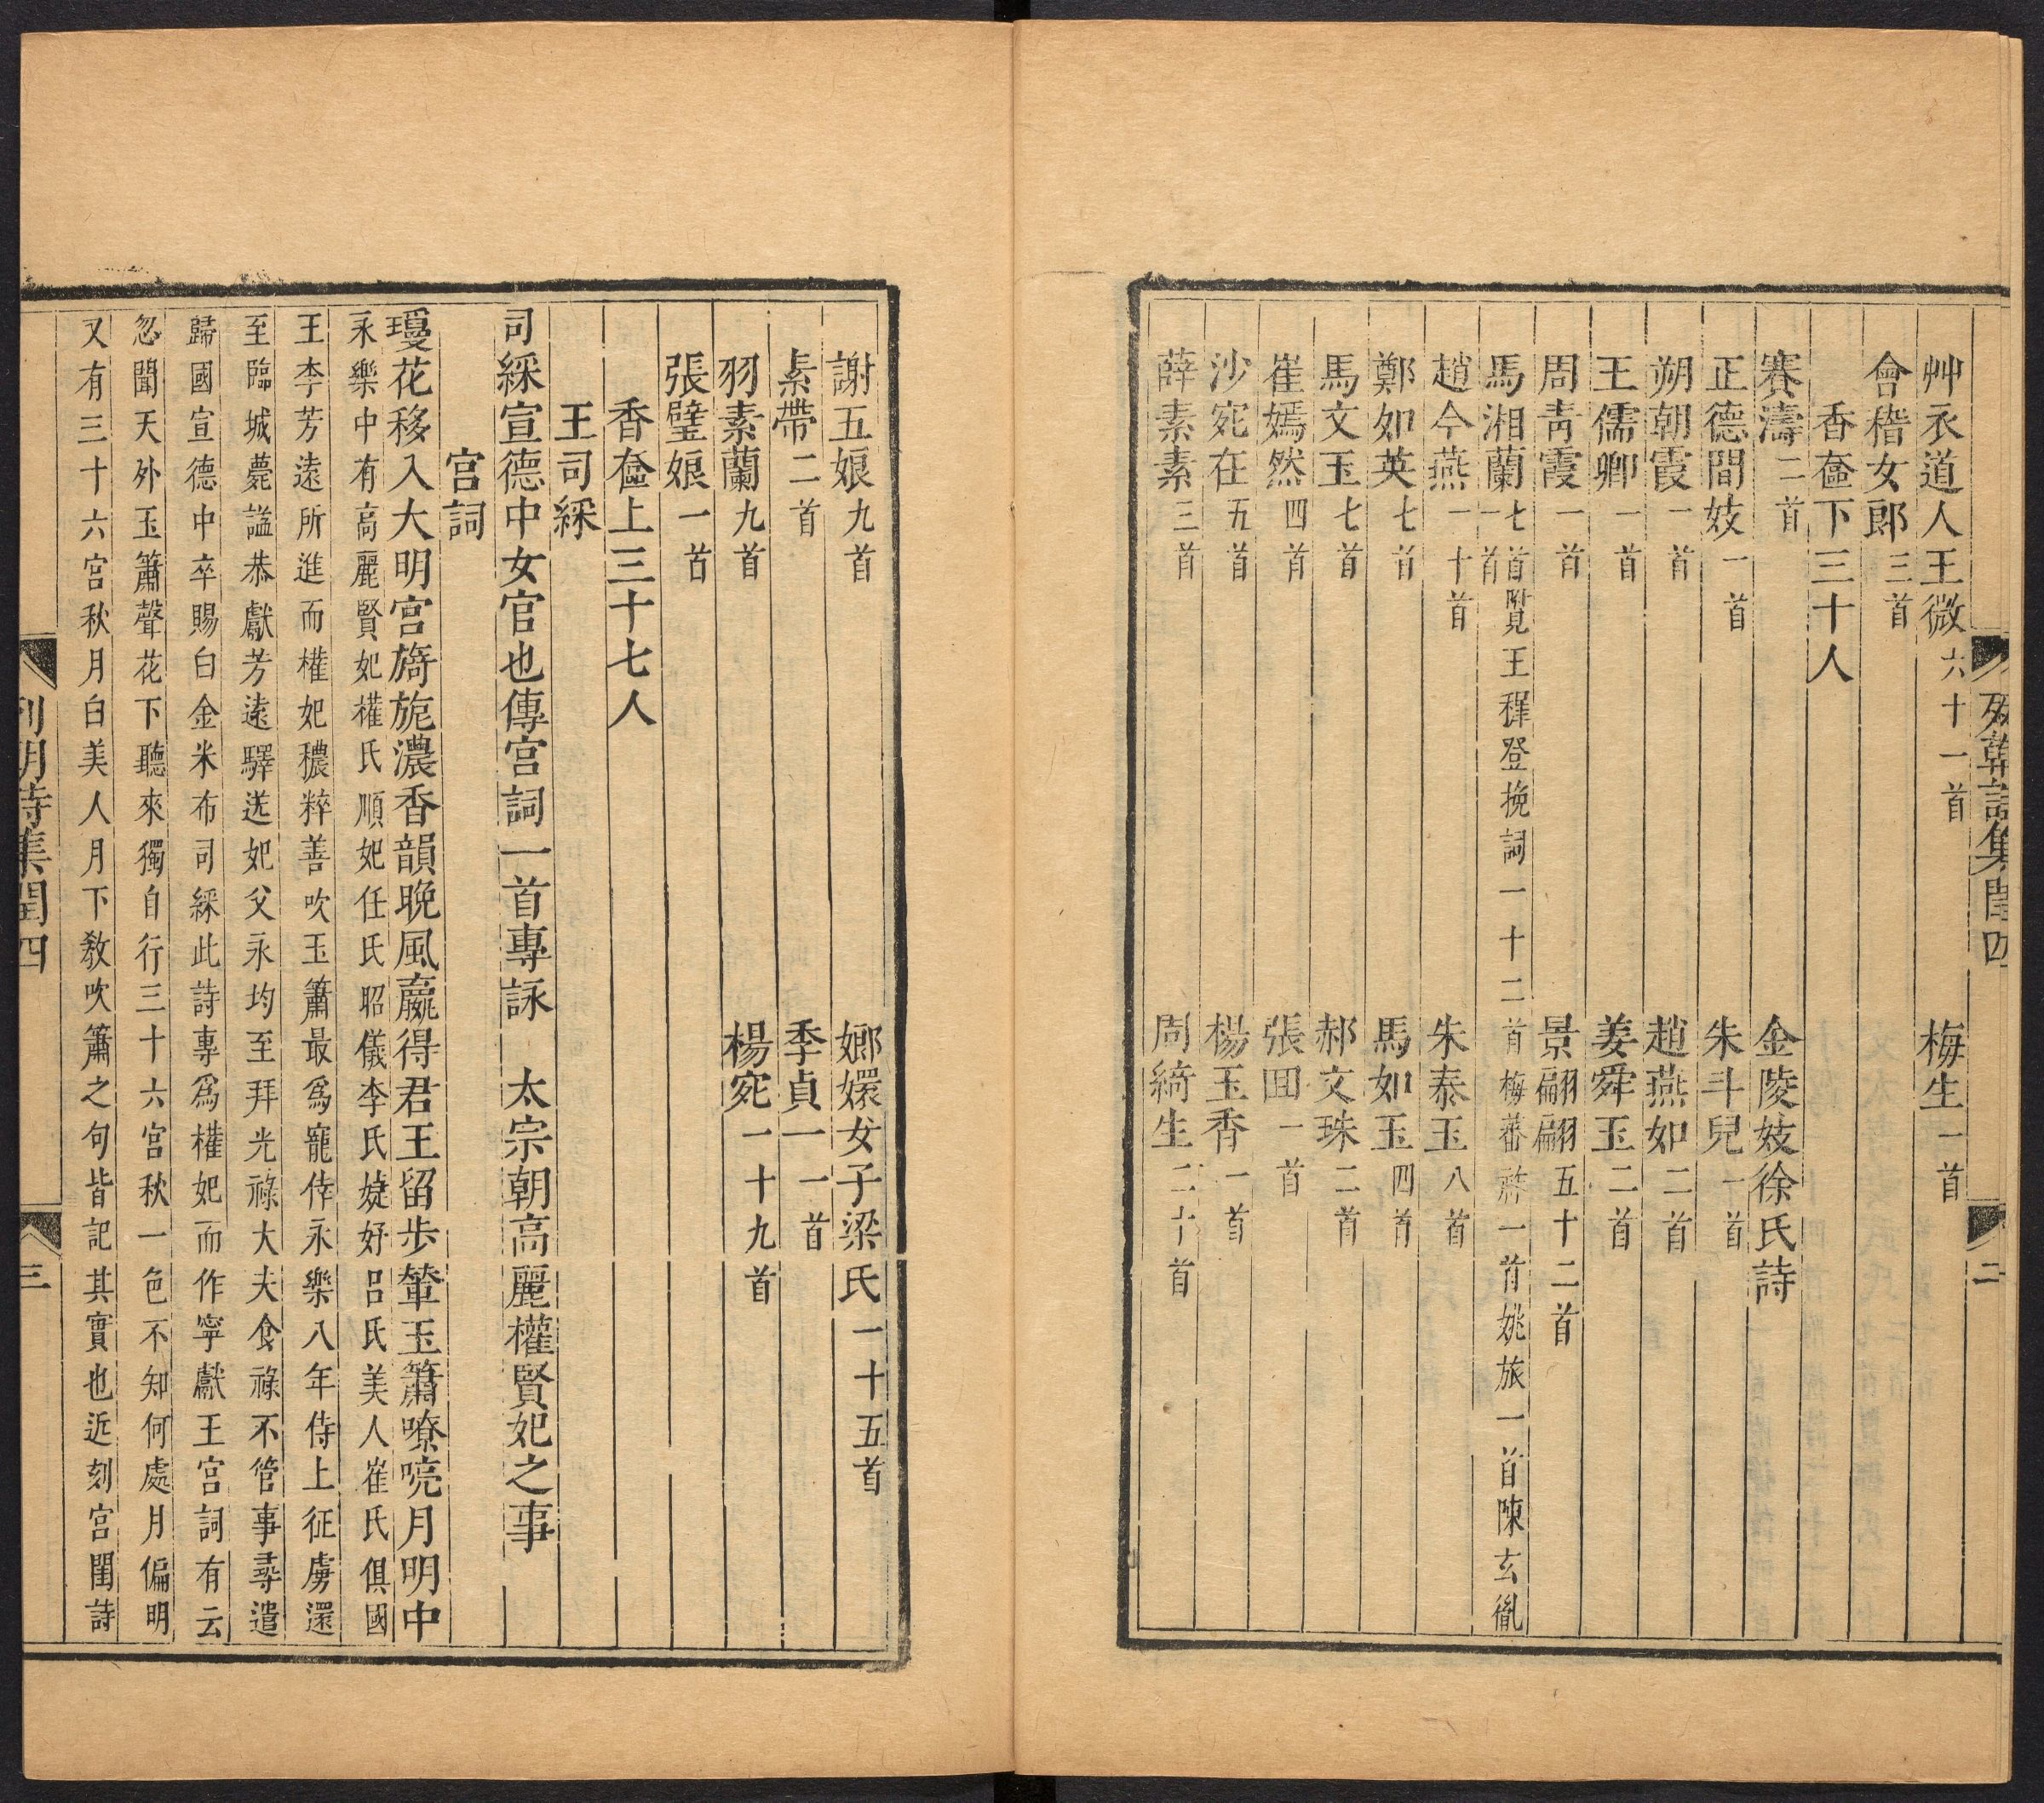 列朝詩集閏四
二
艸衣道人王微六十一首 梅生一首
會稽女郎三首
香奩下三十人
賽濤二首 金陵妓徐氏詩
正德間妓一首 朱斗兒一首
朔朝霞一首 趙燕如二首
王儒卿一首 姜舜玉二首
周青霞一首 景翩翩五十二首
馬湘蘭七首附見王穉登挽詞一十二首梅蕃祚一首姚旅一首陳玄胤一首
趙今燕一十首 朱泰玉八首
鄭如英七首 馬如玉四首
馬文玉七首 郝文珠二首
崔嫣然四首 張回一首
沙宛在五首 楊玉香一首
薛素素三首 周綺生二十首
謝五娘九首 嫏嬛女子梁氏一十五首
素帶二首 季貞一一首
羽素蘭九首 楊宛一十九首
張璧娘一首
香奩上三十七人
王司綵
司綵宣德中女官也傳宮詞一首專詠 太宗朝高麗權賢妃之事
宮詞
瓊花移入大明宮旖旎濃香韻晚風贏得君王留步輦玉簫嘹喨月明中
永樂中有高麗賢妃權氏順妃任氏昭儀李氏婕妤呂氏美人崔氏俱國
王李芳遠所進而權妃穠粹善吹玉簫最爲寵倖永樂八年侍上征虜還
至臨城薨謚恭獻芳遠驛送妃父永均至拜光祿大夫食祿不管事尋遣
歸國宣德中卒賜白金米布司綵此詩專爲權妃而作寧獻王宮詞有云
忽聞天外玉簫聲花下聽來獨自行三十六宮秋一色不知何處月偏明
又有三十六宮秋月白美人月下教吹簫之句皆記其實也近刻宮閨詩
列朝詩集閏四
三